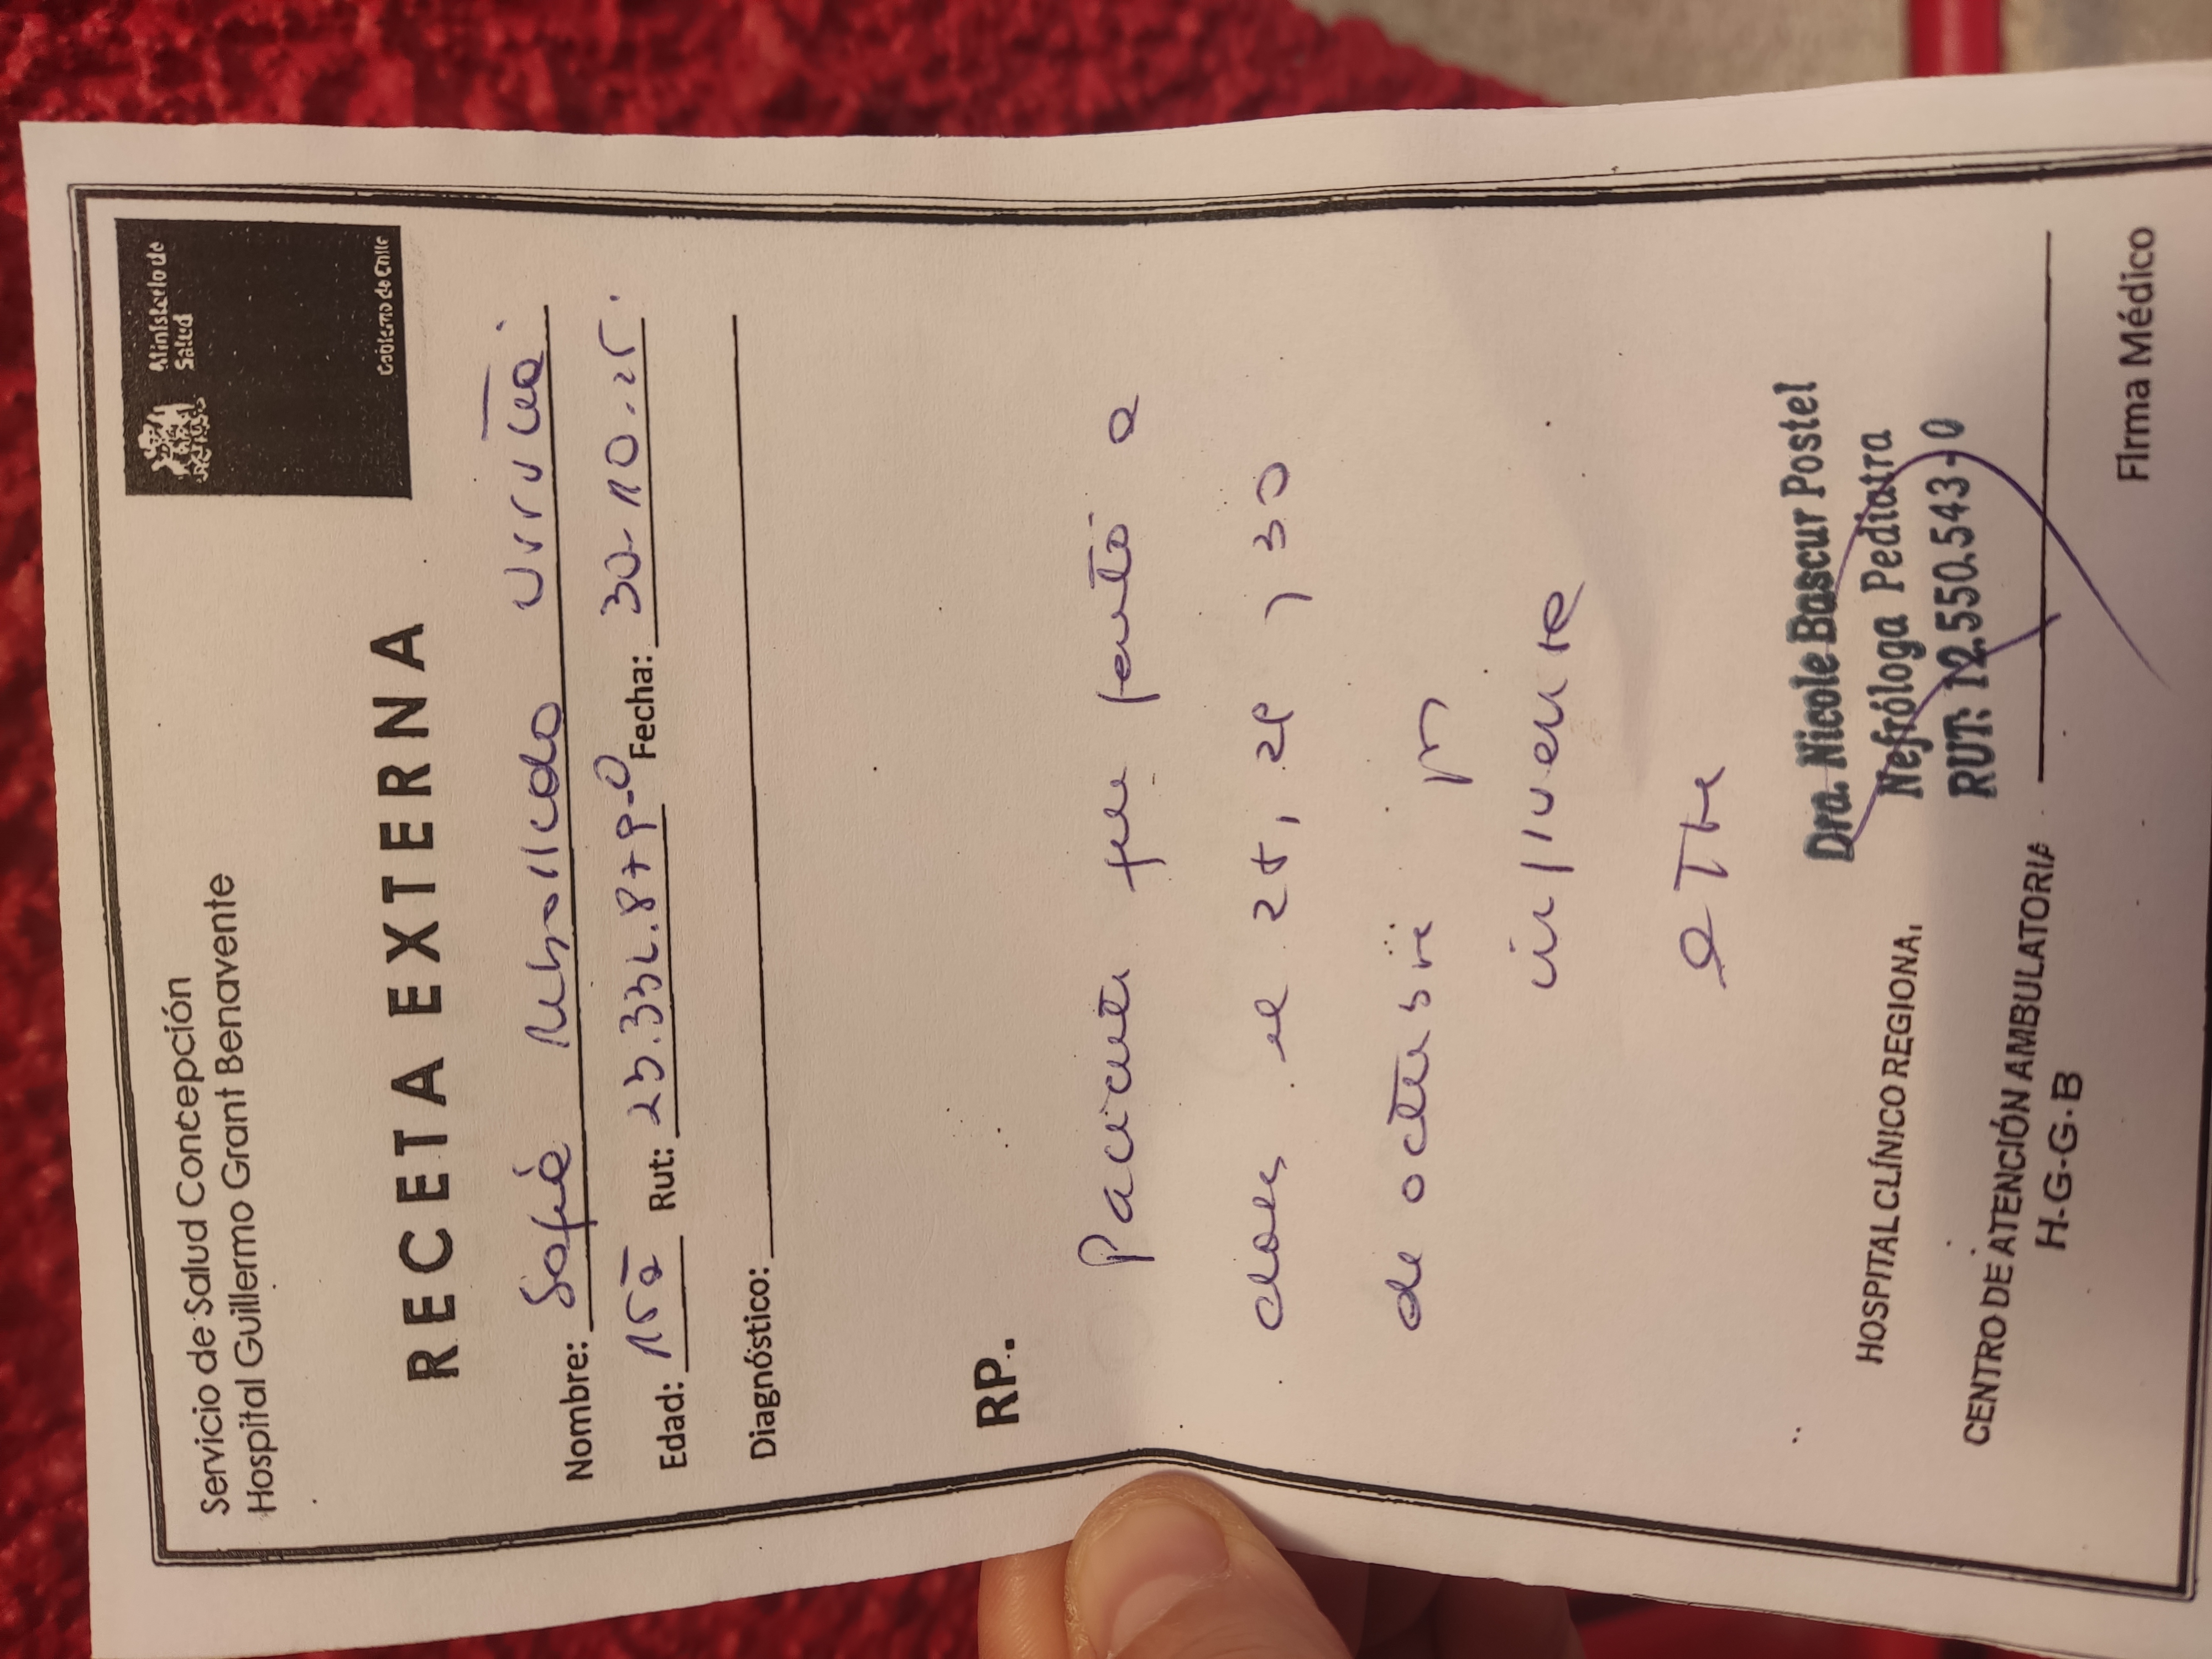 Servicio de Salud Concepción
Hospital Guillermo Grant Benavente
Ministerio de
Salud
Gobierno de Chile
RECETA EXTERNA
Nombre: Sofía Urrutia
Edad: 15a Rut: Fecha: 30-10-25.
Diagnóstico:
RP.
Paciente a
clases el 28, 29 y 30
de octubre
HOSPITAL CLÍNICO REGIONAL
CENTRO DE ATENCIÓN AMBULATORIA
H-G-G-B
Dra. Nicole Bascur Postel
Nefróloga Pediatra
RUT: 12.550.543-0
Firma Médico